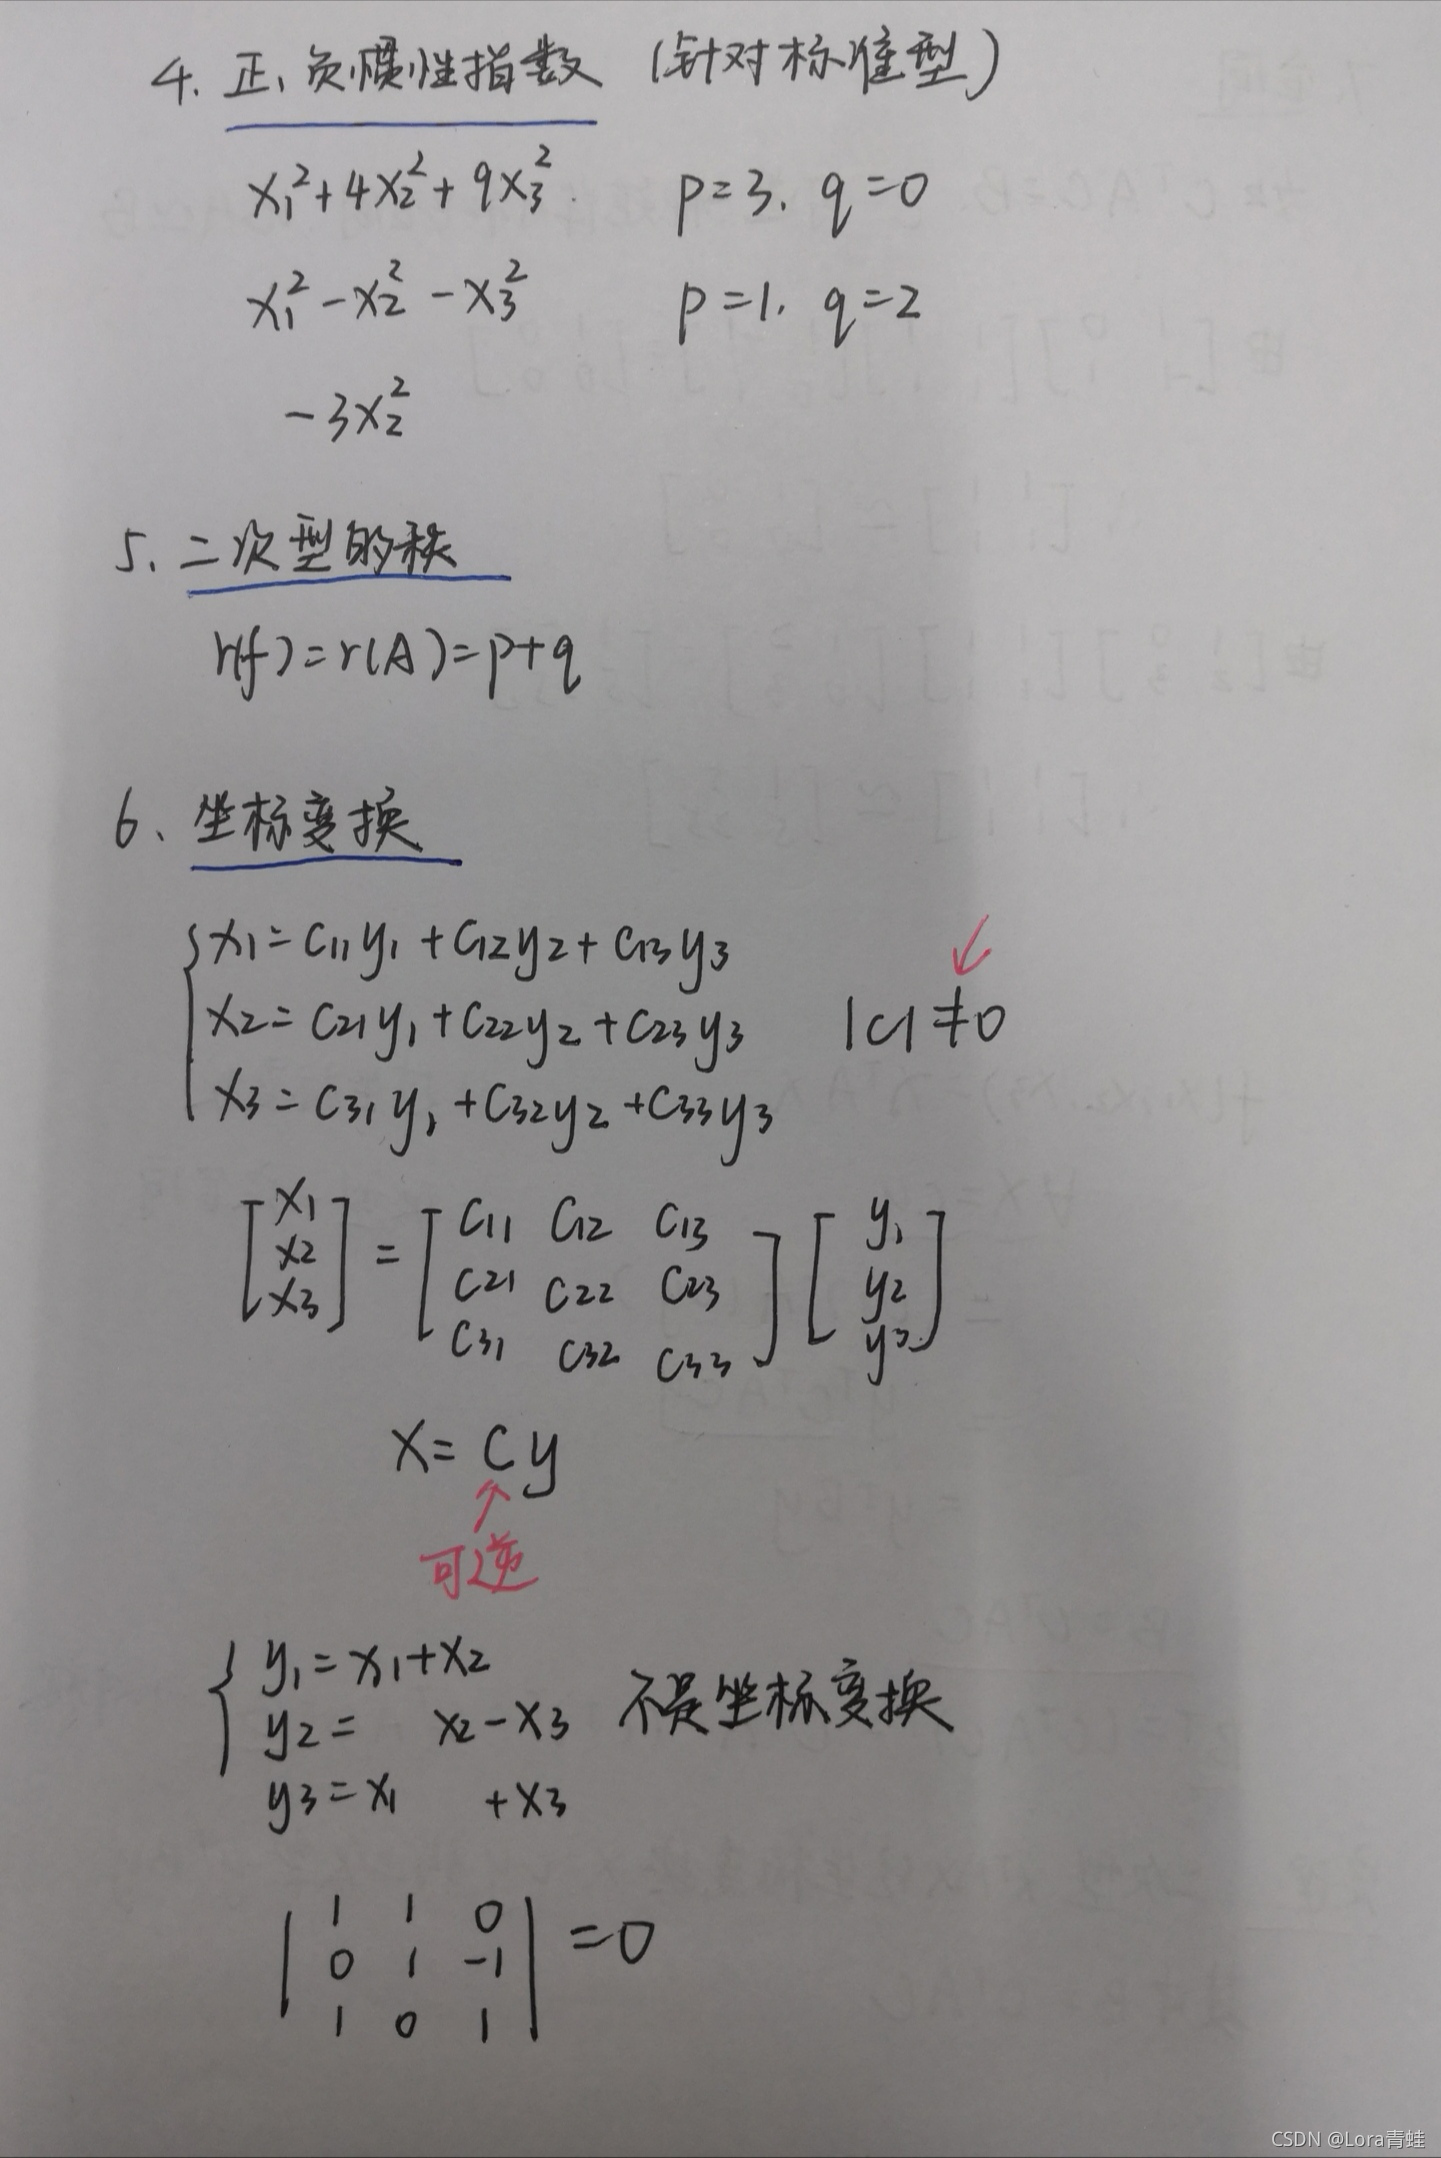 4. 正、负惯性指数 (针对标准型)
x₁²+4x₂²+9x₃². p=3. q=0
x₁²-x₂²-x₃² p=1. q=2
-3x₂²
5. 二次型的秩
r(f)=r(A)=p+q
6、坐标变换
x1=C11y1+C12y2+C13y3
x2=C21y1+C22y2+C23y3 |C|≠0
x3=C31y1+C32y2+C33y3
[x1 x2 x3] = [C11 C12 C13
C21 C22 C23
C31 C32 C33] [y1 y2 y3]
x=Cy
可逆
y1=x1+x2
y2= x2-x3 不是坐标变换
y3=x1 +x3
| 1 1 0
0 1 -1 | =0
1 0 1
CSDN @Lora青蛙